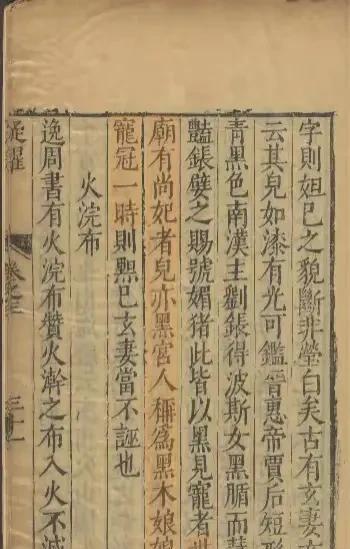 字則妲已之貌斷非瑩白矣古有玄妻
云其皃如漆有光可鑑晋惠帝賈后短形
青黑色南漢主劉鋹得波斯女黑腯而慧
豔鋹嬖之賜號媚猪此皆以黑見寵者世
廟有尚妃者皃亦黑宮人稱爲黑木娘娘
寵冠一時則䵣已玄妻當不誣也
火浣布
逸周書有火浣布贊火澣之布入火不滅
疑耀
卷之三